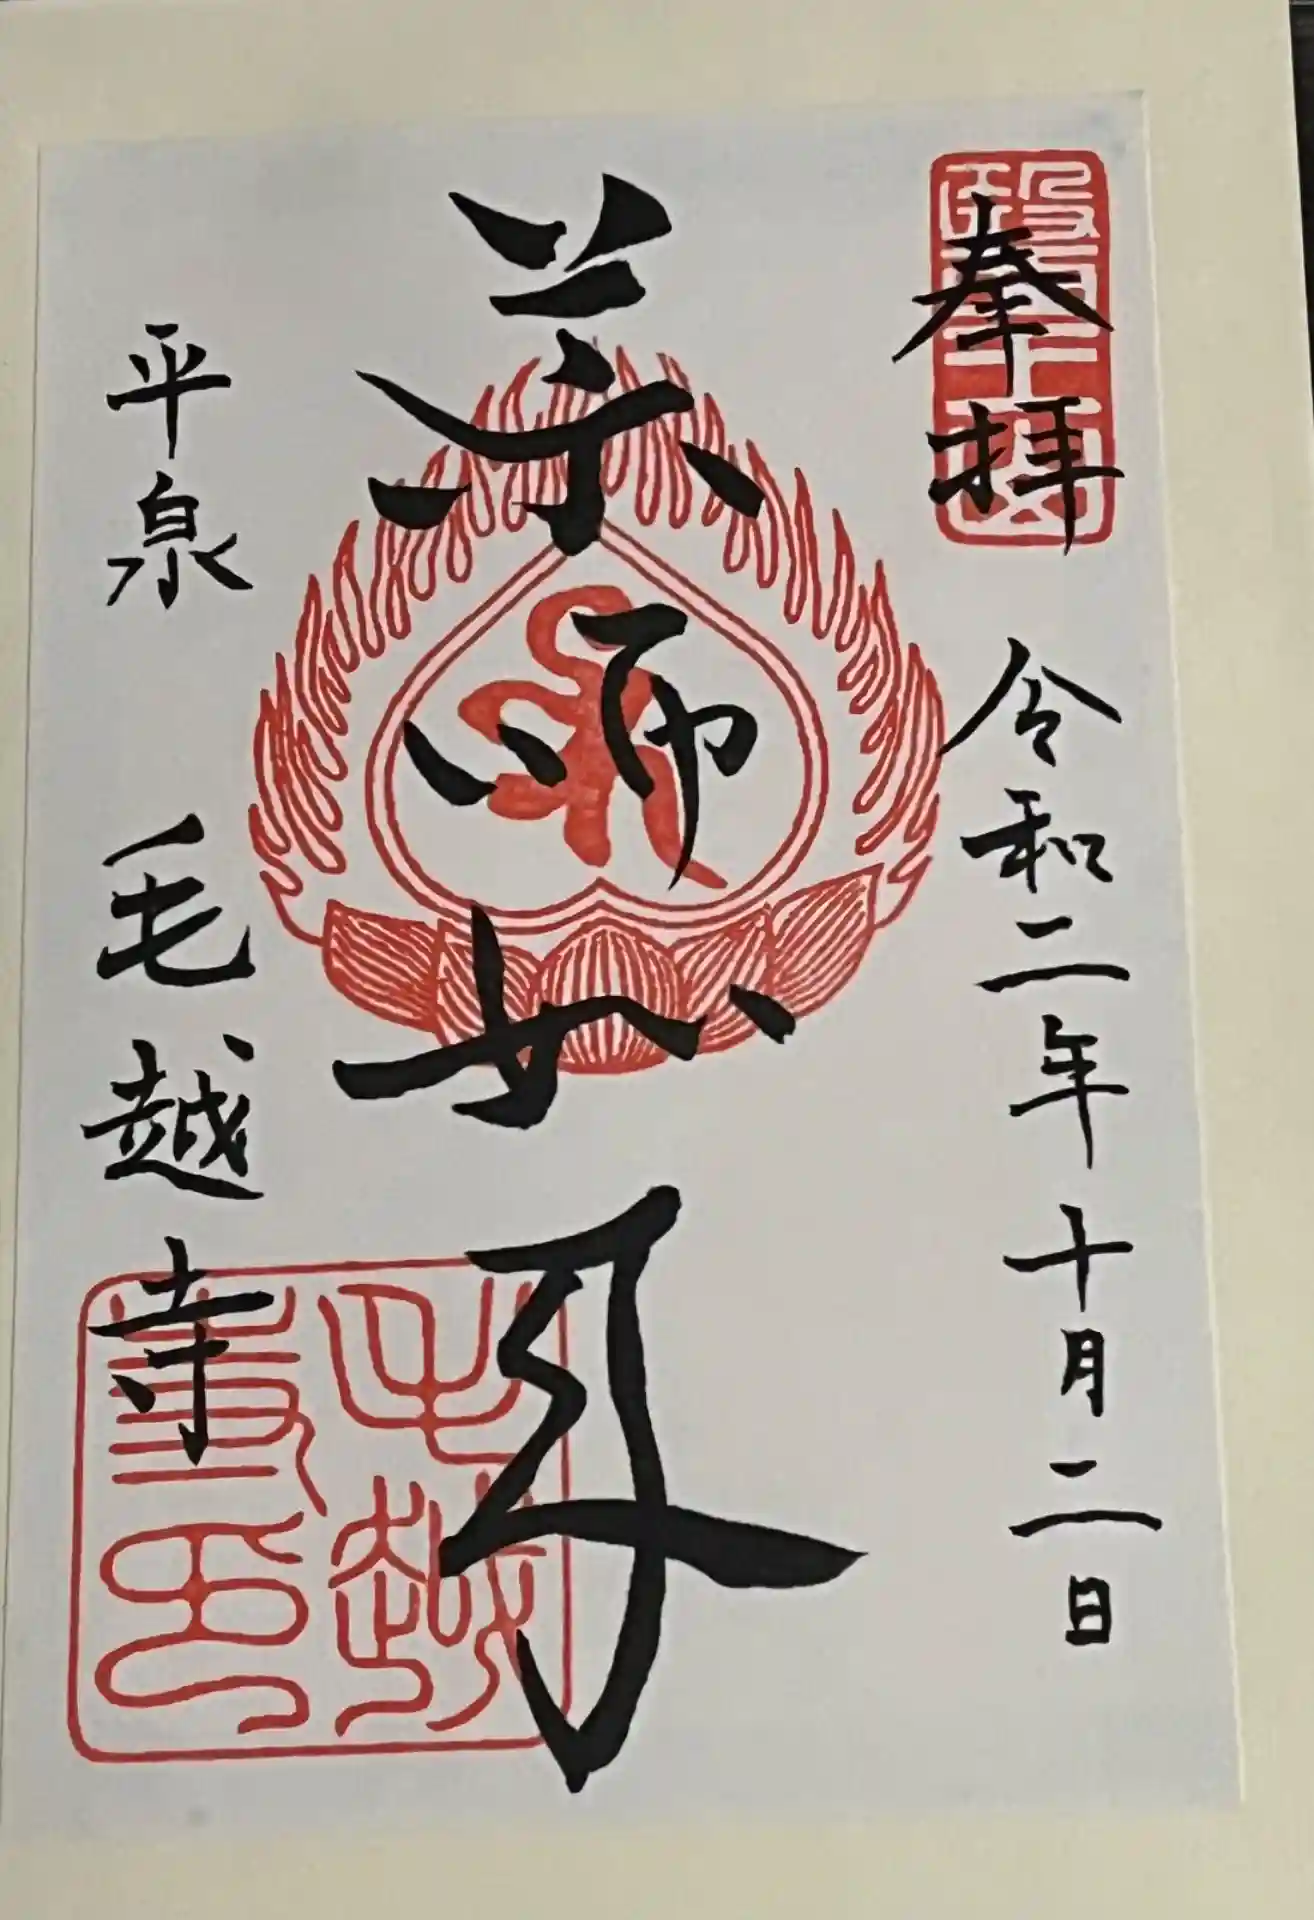 奉拝
令和二年十月二日
薬師如来
平泉
毛越寺